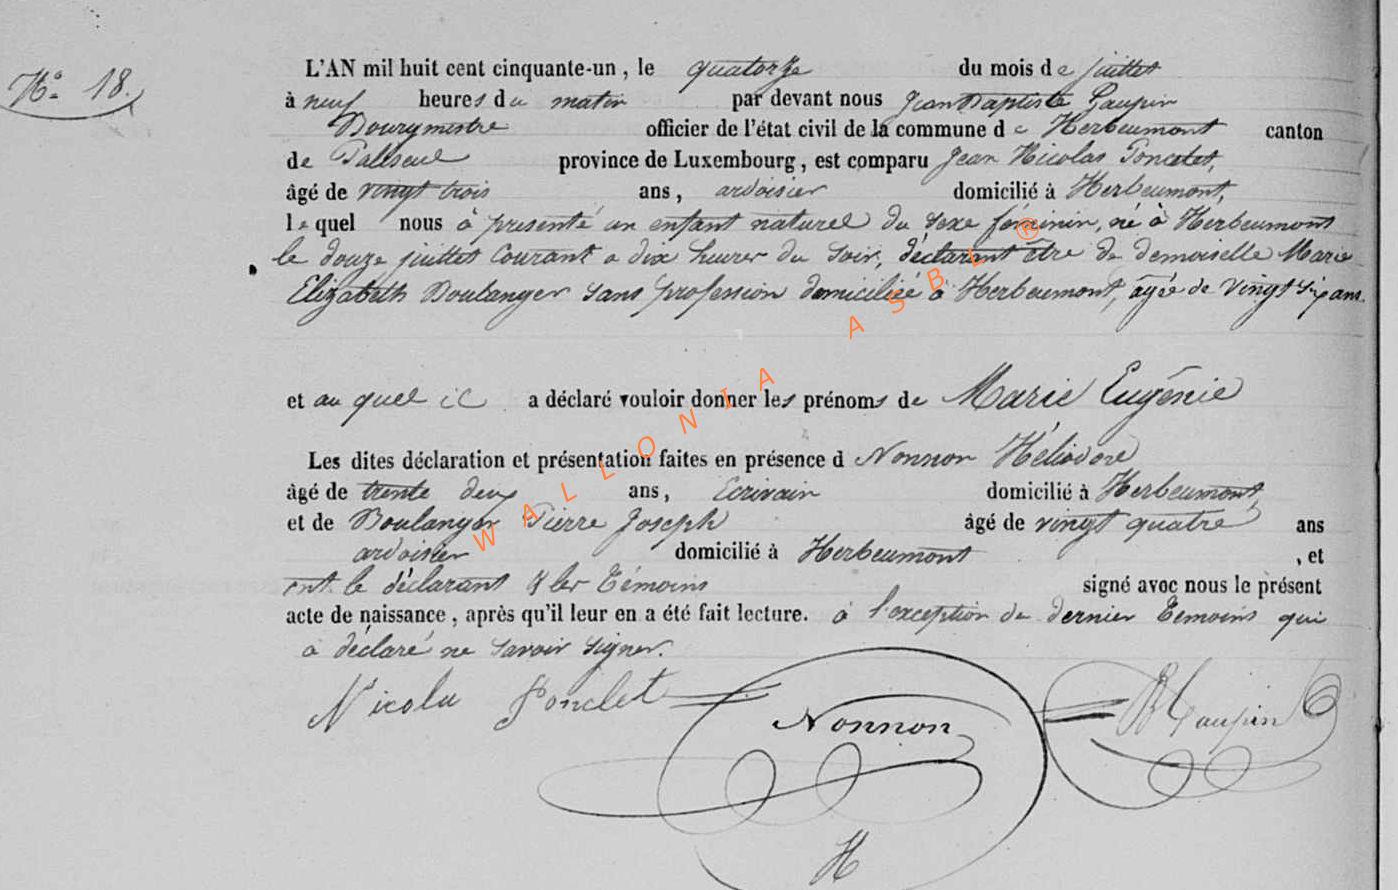 N° 18.
L'AN mil huit cent cinquante-un, le quatorze du mois de juillet
à neuf heures du matin par devant nous Jean Baptiste Gaupin
Bourgmestre officier de l'état civil de la commune de Herbeumont canton
de Paliseul province de Luxembourg, est comparu Jean Nicolas Poncelet,
âgé de vingt trois ans, ardoisier domicilié à Herbeumont,
lequel nous à presenté un enfant naturel du sexe féminin, né à Herbeumont
le douze juillet courant a dix heures du soir, déclarant être de demoiselle Marie
Elizabeth Boulanger sans profession domiciliée à Herbeumont, agée de vingt six ans.
et au quel il a déclaré vouloir donner les prénoms de Marie Eugénie
Les dites déclaration et présentation faites en présence d Nonnon Héliodore
âgé de trente deux ans, Ecrivain domicilié à Herbeumont,
et de Boulanger Pierre Joseph âgé de vingt quatre ans
ardoisier domicilié à Herbeumont , et
ont le déclarant & les témoins signé avec nous le présent
acte de naissance, après qu'il leur en a été fait lecture. à l'exception du dernier témoins qui
a déclaré ne savoir signer.
Nicola Ponclet Nonnon Gaupin
H
WALLONIA ASBL ®